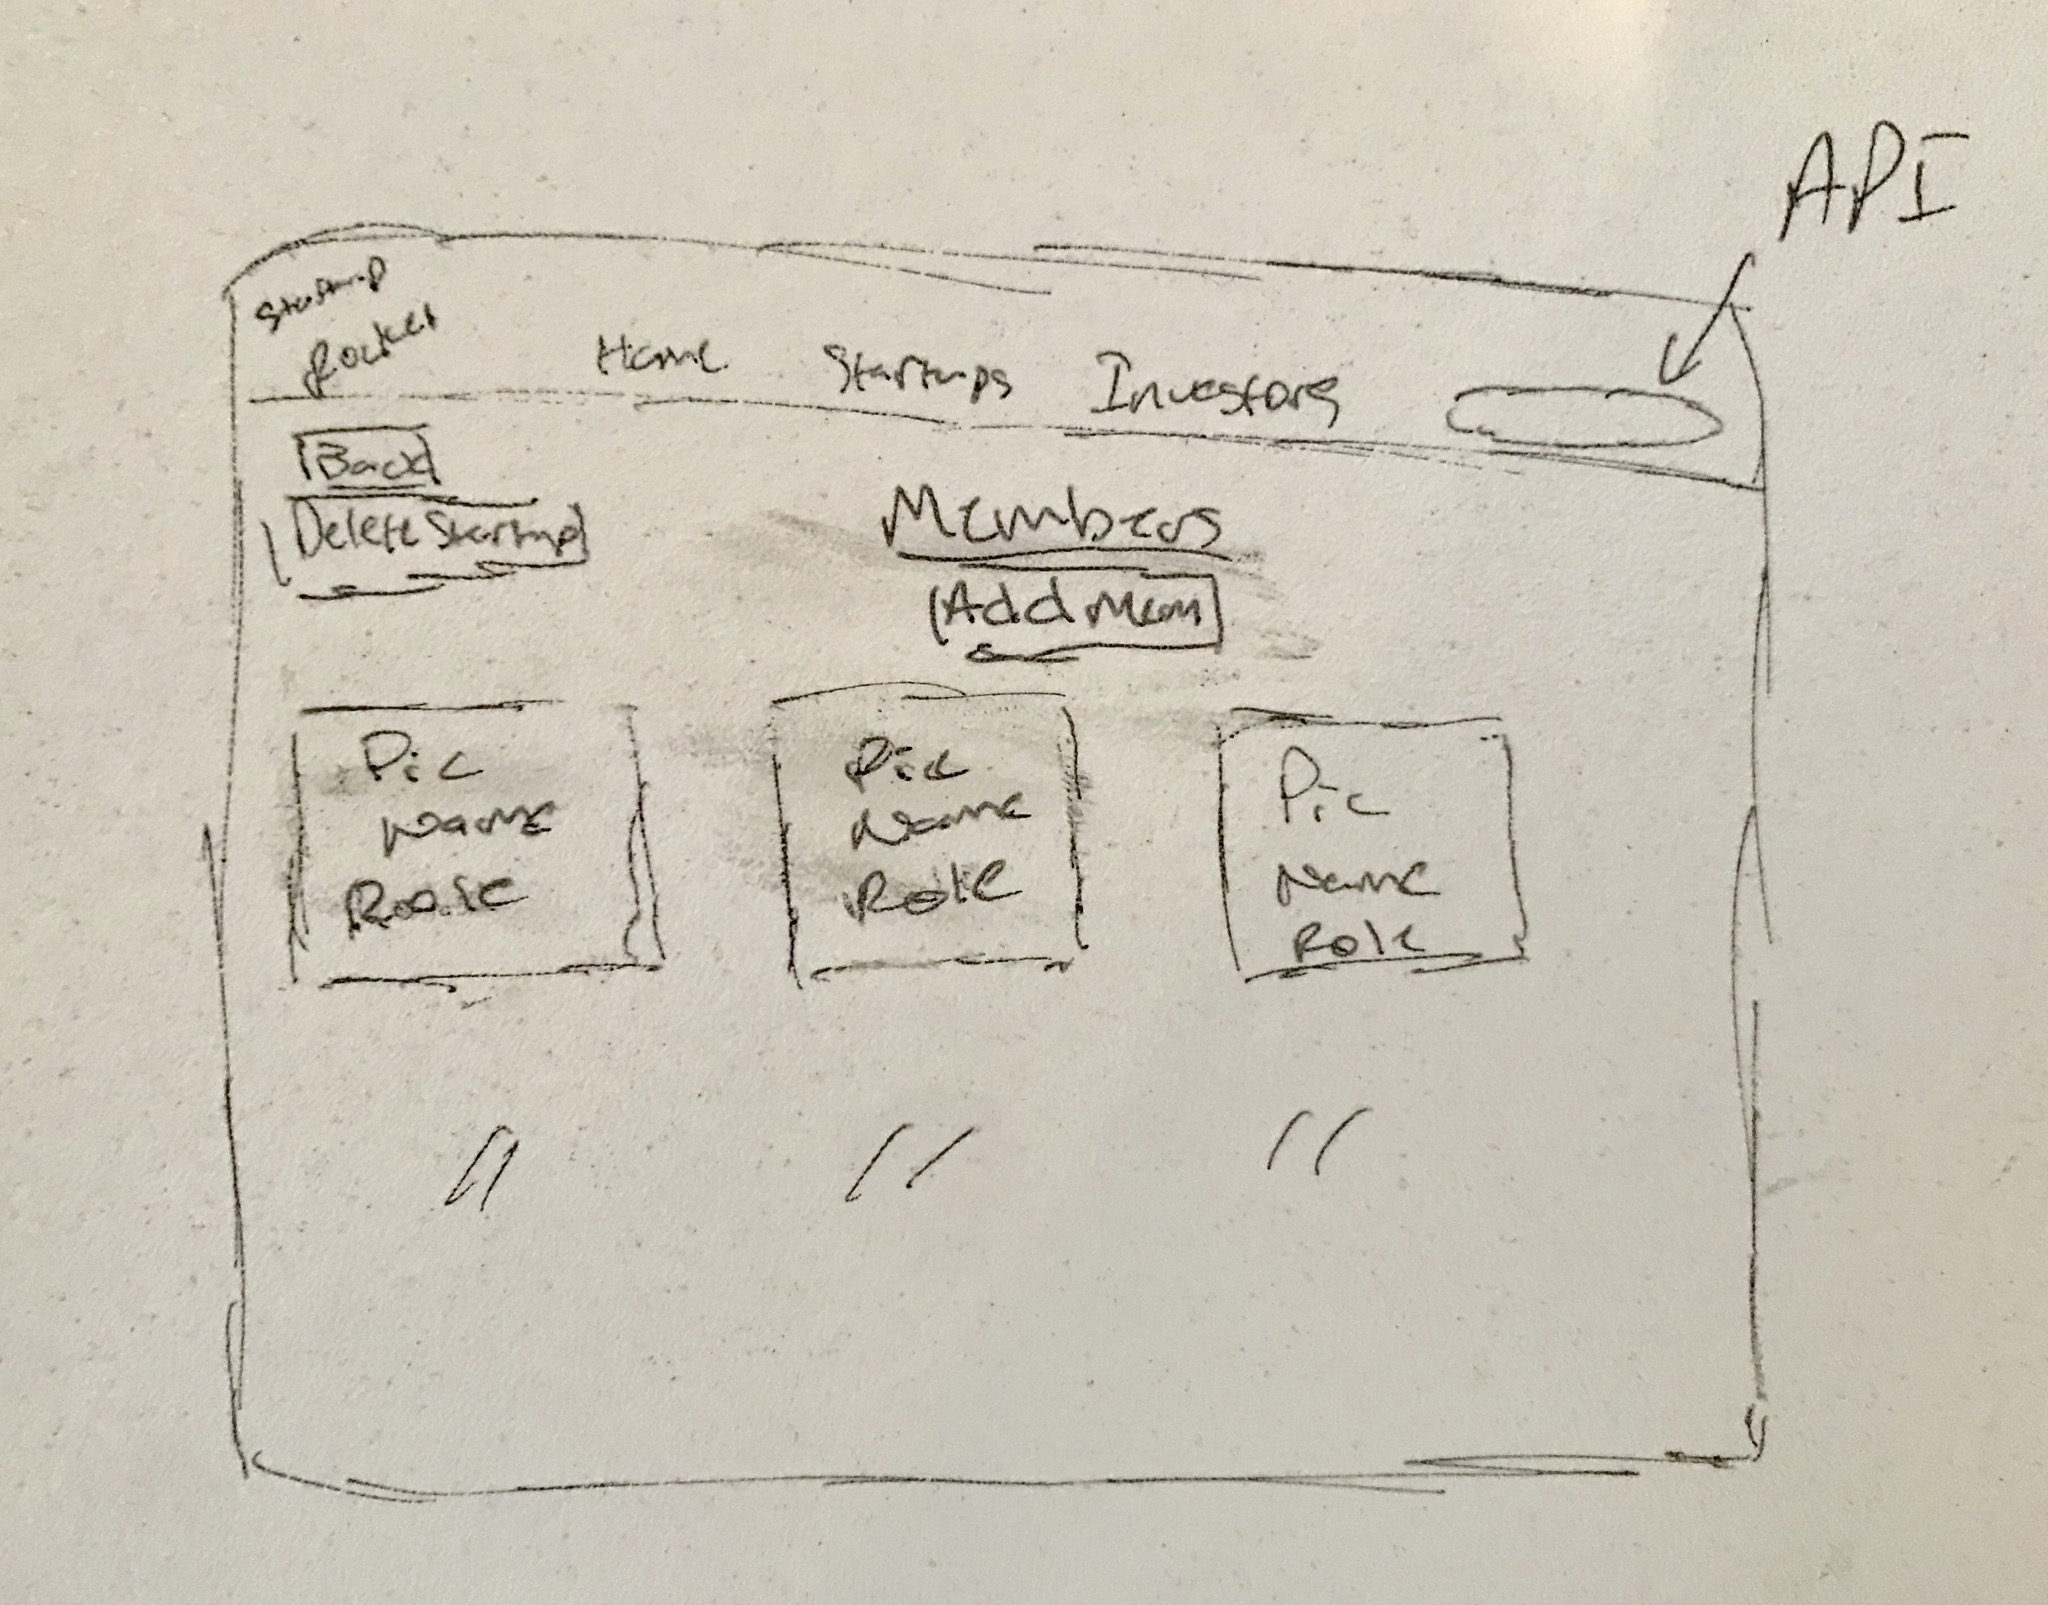 API
Startup
Rocket
Home Startups Investors
Back
Delete Startup
Members
Add Mem
Pic Pic Pic
Name Name Name
Role Role Role
// // //